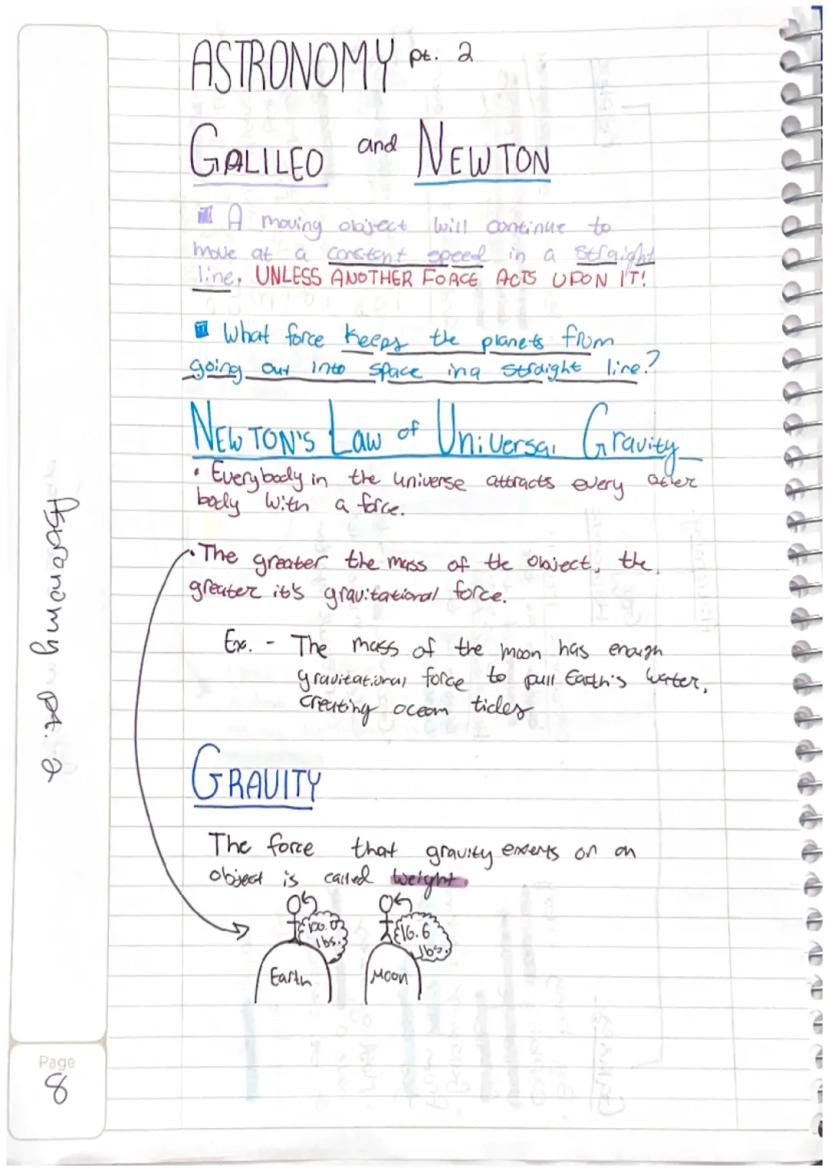 ASTRONOMY pt. 2
GALILEO and NEWTON
A moving object will continue to
move at a constant speed in a straight
line, UNLESS ANOTHER FORCE ACTS UPON IT!
What force keeps the planets from
going out into space in a straight line?
NEWTON'S LAW of Universal Gravity
• Everybody in the universe attracts every other
body with a force.
• The greater the mass of the object, the
greater it's gravitational force.
Ex. - The mass of the moon has enough
gravitational force to pull Earth's water,
creating ocean tides
GRAVITY
The force that gravity exerts on an
object is called weight
100.0 16.6
lbs. lbs.
Earth Moon
Astronomy pt. 2
Page
8